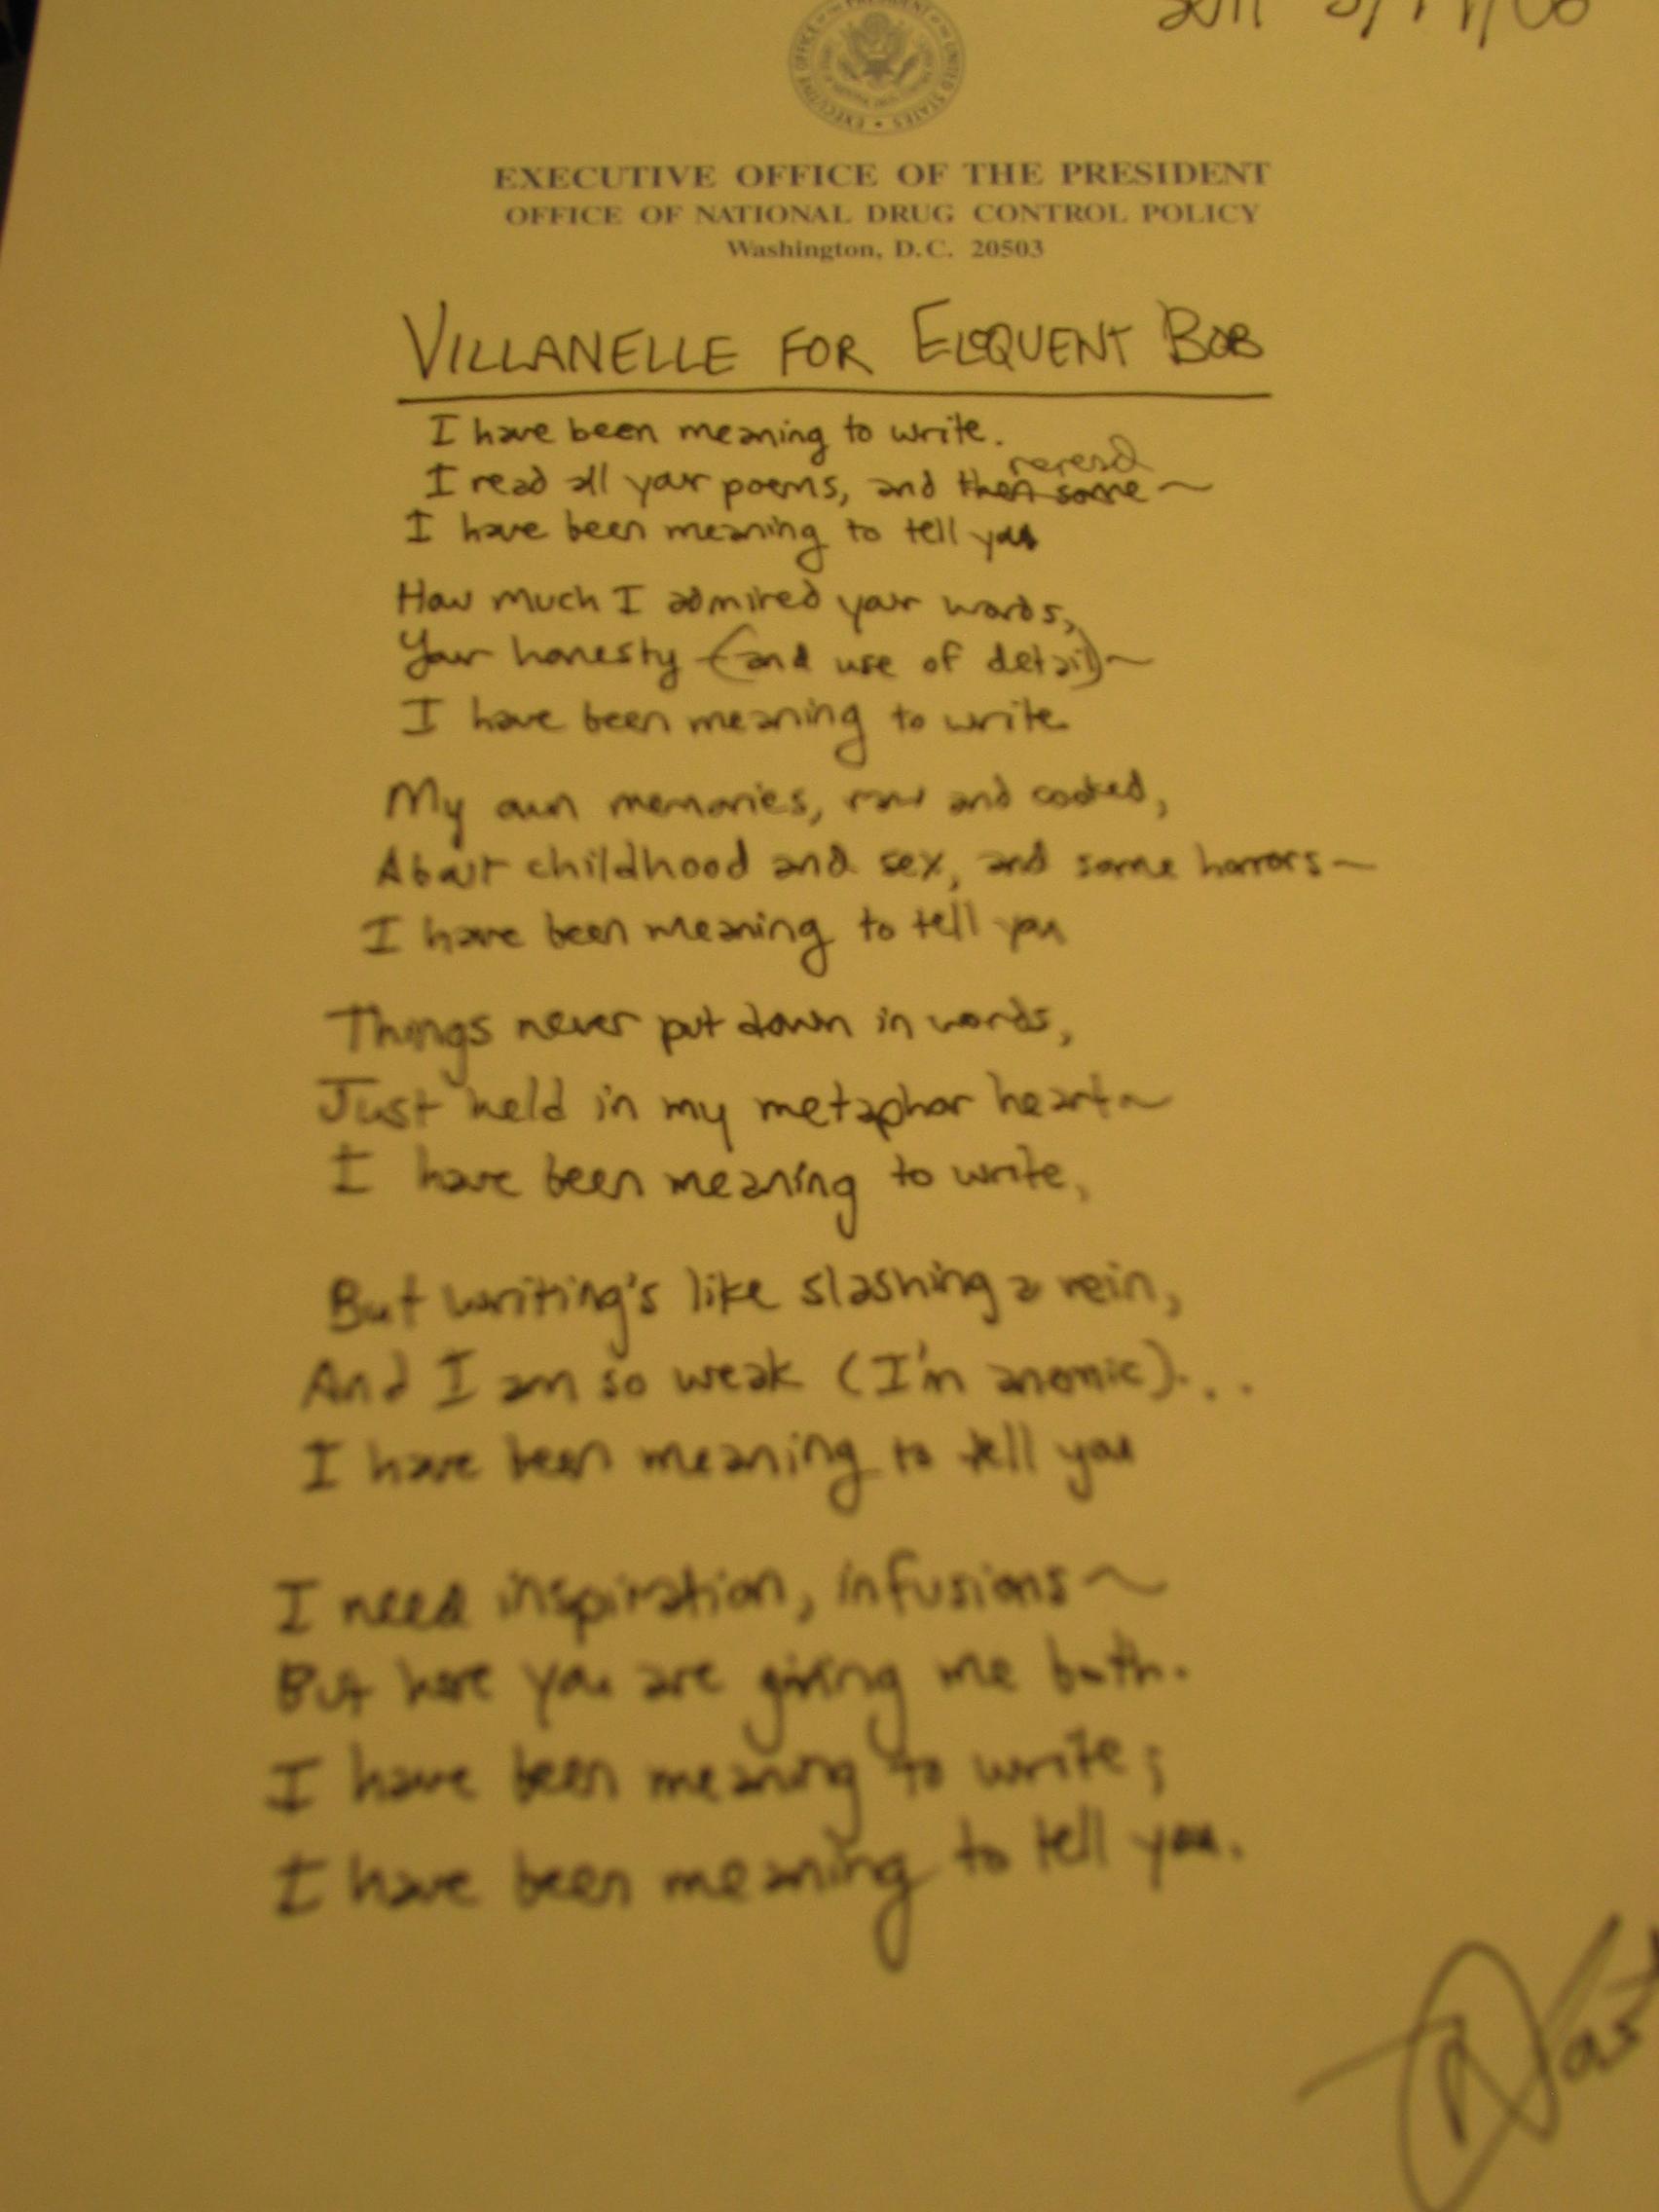 EXECUTIVE OFFICE OF THE PRESIDENT
OFFICE OF NATIONAL DRUG CONTROL POLICY
Washington, D.C. 20503
VILLANELLE FOR ELOQUENT BOB
I have been meaning to write.
reread
I read all your poems, and then some ~
I have been meaning to tell you
How much I admired your words,
Your honesty (and use of detail) ~
I have been meaning to write
My own memories, raw and cooked,
About childhood and sex, and some horrors ~
I have been meaning to tell you
Things never put down in words,
Just held in my metaphor heart ~
I have been meaning to write,
But writing's like slashing a vein,
And I am so weak (I'm anemic)...
I have been meaning to tell you
I need inspiration, infusions ~
But here you are giving me both.
I have been meaning to write;
I have been meaning to tell you.